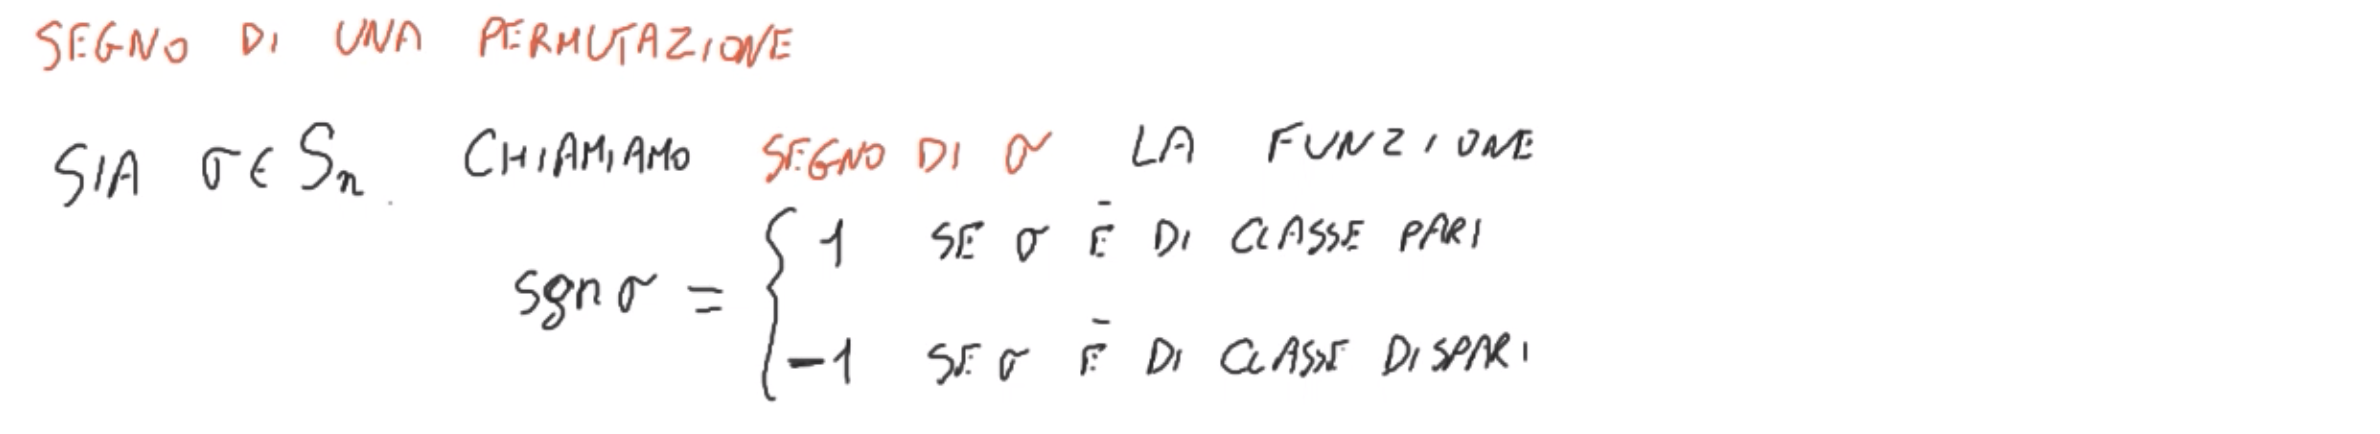 SEGNO DI UNA PERMUTAZIONE
SIA σ ∈ Sₙ. CHIAMIAMO SEGNO DI σ LA FUNZIONE
sgn σ = { 1 SE σ Ē DI CLASSE PARI
-1 SE σ Ē DI CLASSE DISPARI